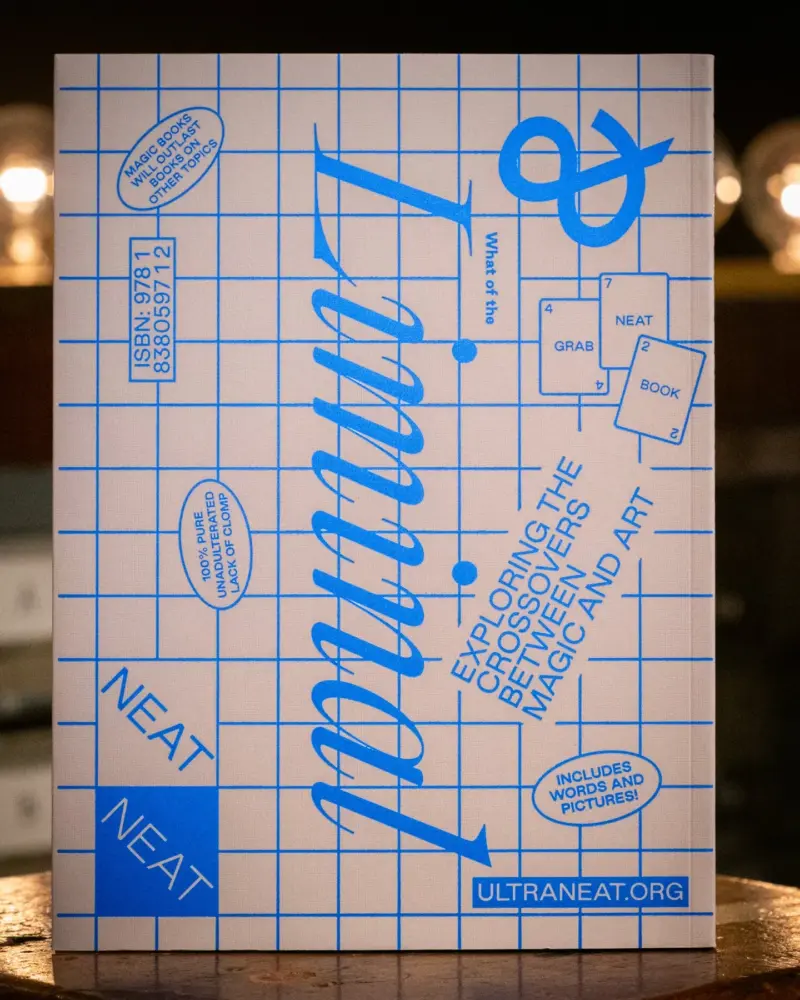 MAGIC BOOKS
WILL OUTLAST
BOOKS ON
OTHER TOPICS
&
What of the
Liminal
ISBN: 978 1
83805971 2
4
GRAB
4
7
NEAT
2
BOOK
2
EXPLORING THE
CROSSOVERS
BETWEEN
MAGIC AND ART
100% PURE
UNADULTERATED
LACK OF CLOMP
NEAT
NEAT
INCLUDES
WORDS AND
PICTURES!
ULTRANEAT.ORG